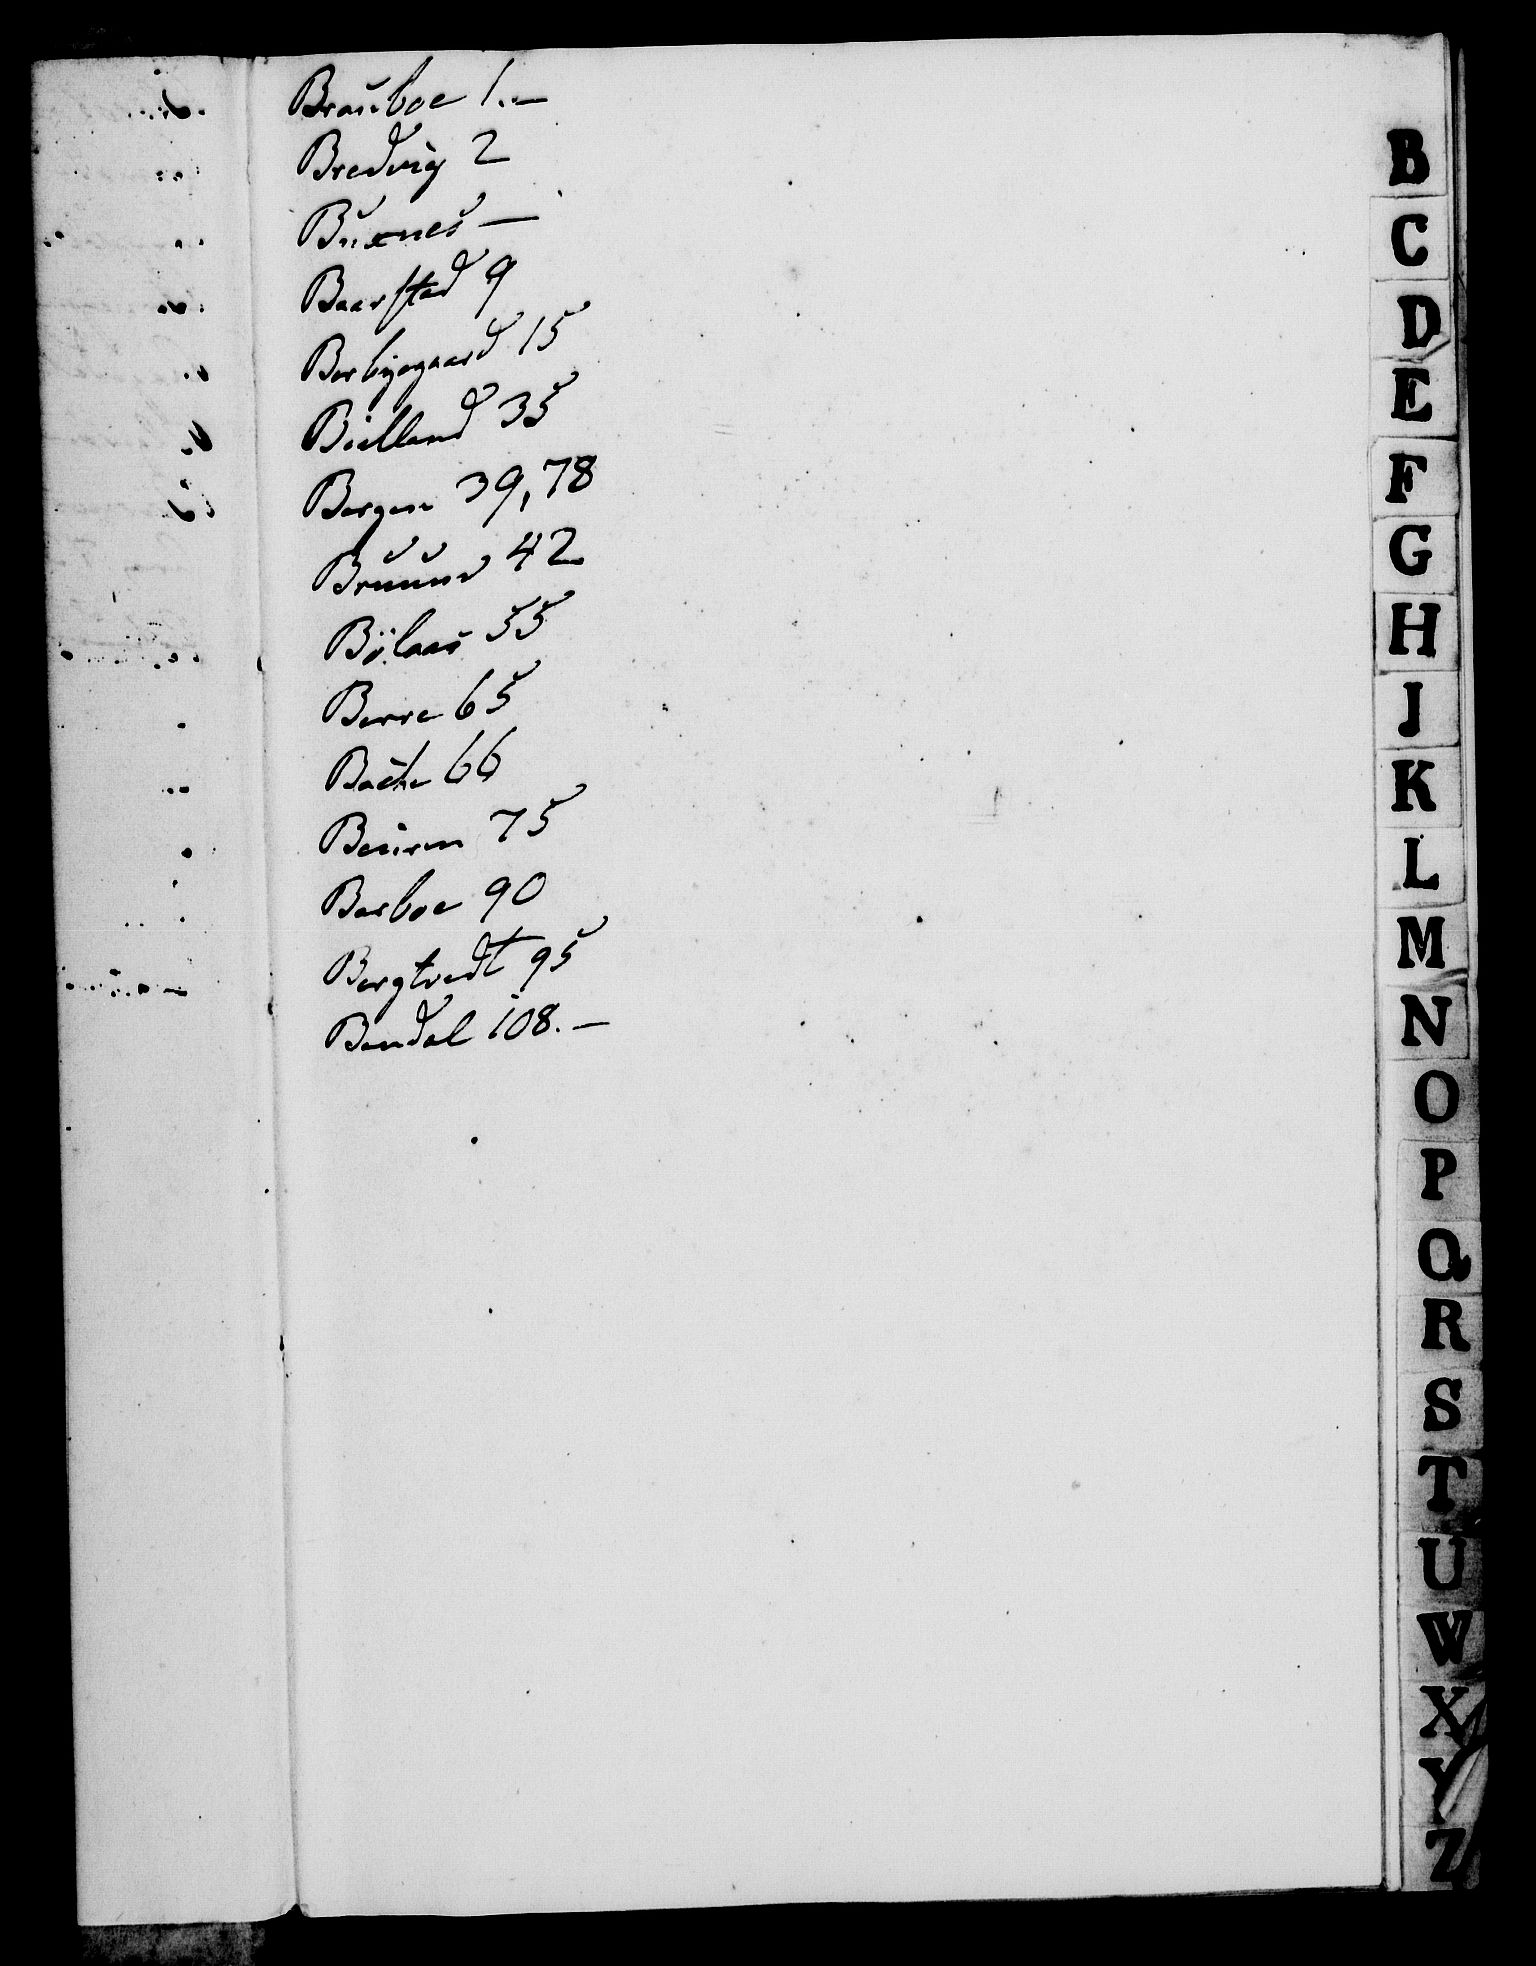 Brauboe 1.–
Bredvig 2
Buxnes –
Baarstad 9
Berbyegaard 15
Bielland 35
Bergen 39, 78
Bruuun 42
Bÿlaas 55
Berre 65
Bache 66
Beuren 75
Barboe 90
Bergtvedt 95
Bendal 108. –
B
C
D
E
F
G
H
J
K
L
M
N
O
P
Q
R
S
T
U
W
X
Y
Z